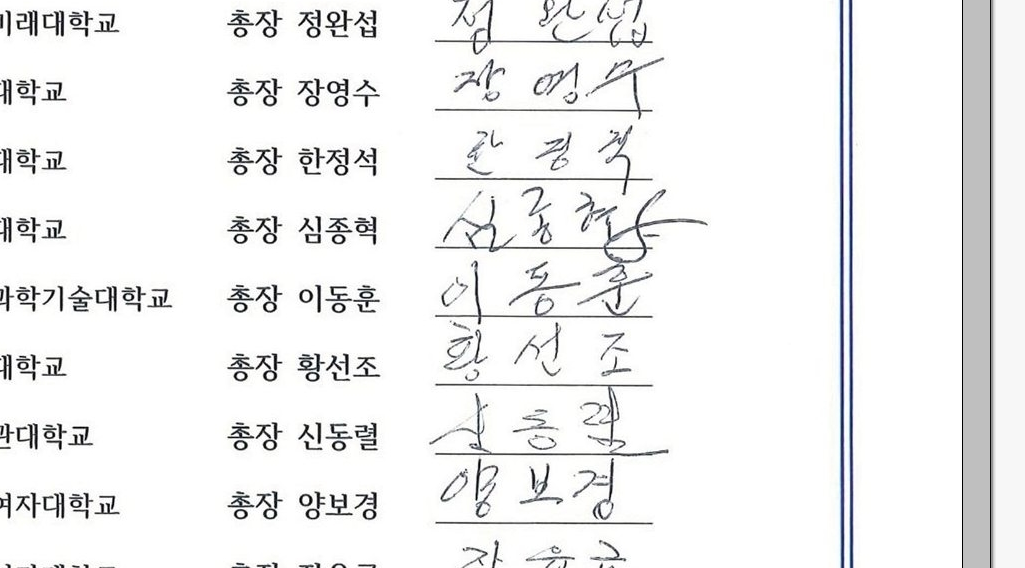 미래대학교 총장 정완섭 정완섭
대학교 총장 장영수 장영수
대학교 총장 한정석 한정석
대학교 총장 심종혁 심종혁
과학기술대학교 총장 이동훈 이동훈
대학교 총장 황선조 황선조
관대학교 총장 신동렬 신동렬
여자대학교 총장 양보경 양보경